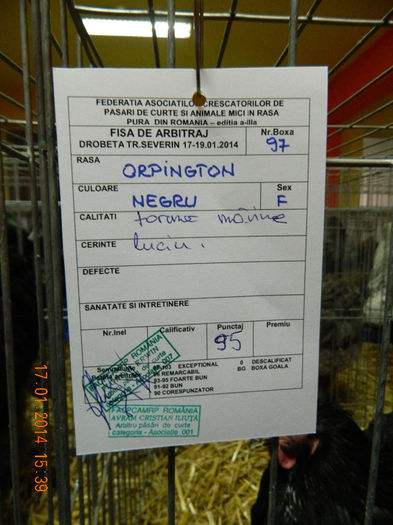 FEDERATIA ASOCIATIILOR CRESCATORILOR DE
PASARI DE CURTE SI ANIMALE MICI IN RASA
PURA DIN ROMANIA – editia a-IIIa
FISA DE ARBITRAJ
DROBETA TR.SEVERIN 17-19.01.2014
Nr.Boxa
97
RASA
ORPINGTON
CULOARE
NEGRU
Sex
F
CALITATI
forma mărime
CERINTE
luciu.
DEFECTE
SANATATE SI INTRETINERE
Nr.Inel
Calificativ
Punctaj
95
Premiu
EXCEPTIONAL
0 DESCALIFICAT
96 REMARCABIL
BG BOXA GOALA
93-95 FOARTE BUN
91-92 BUN
90 CORESPUNZATOR
ROMÂNIA
de curte
007
FACPCAMRP ROMÂNIA
AVRAM CRISTIAN ILIUŢĂ
Arbitru păsări de curte
categoria - Asociatie 001
17.01.2014 15:39